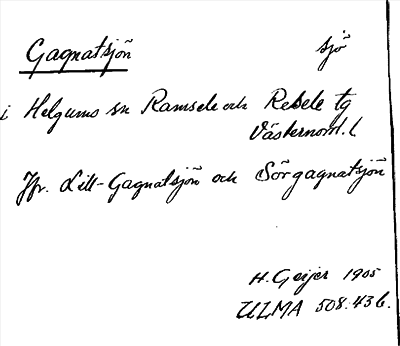 Gagnatsjön sjö
i Helgums sn Ramsele och Resele tg
Västernorrl. l
Jfr. Lill-Gagnatsjön och Sörgagnatsjön
H. Geijer 1905
ULMA 508:436.